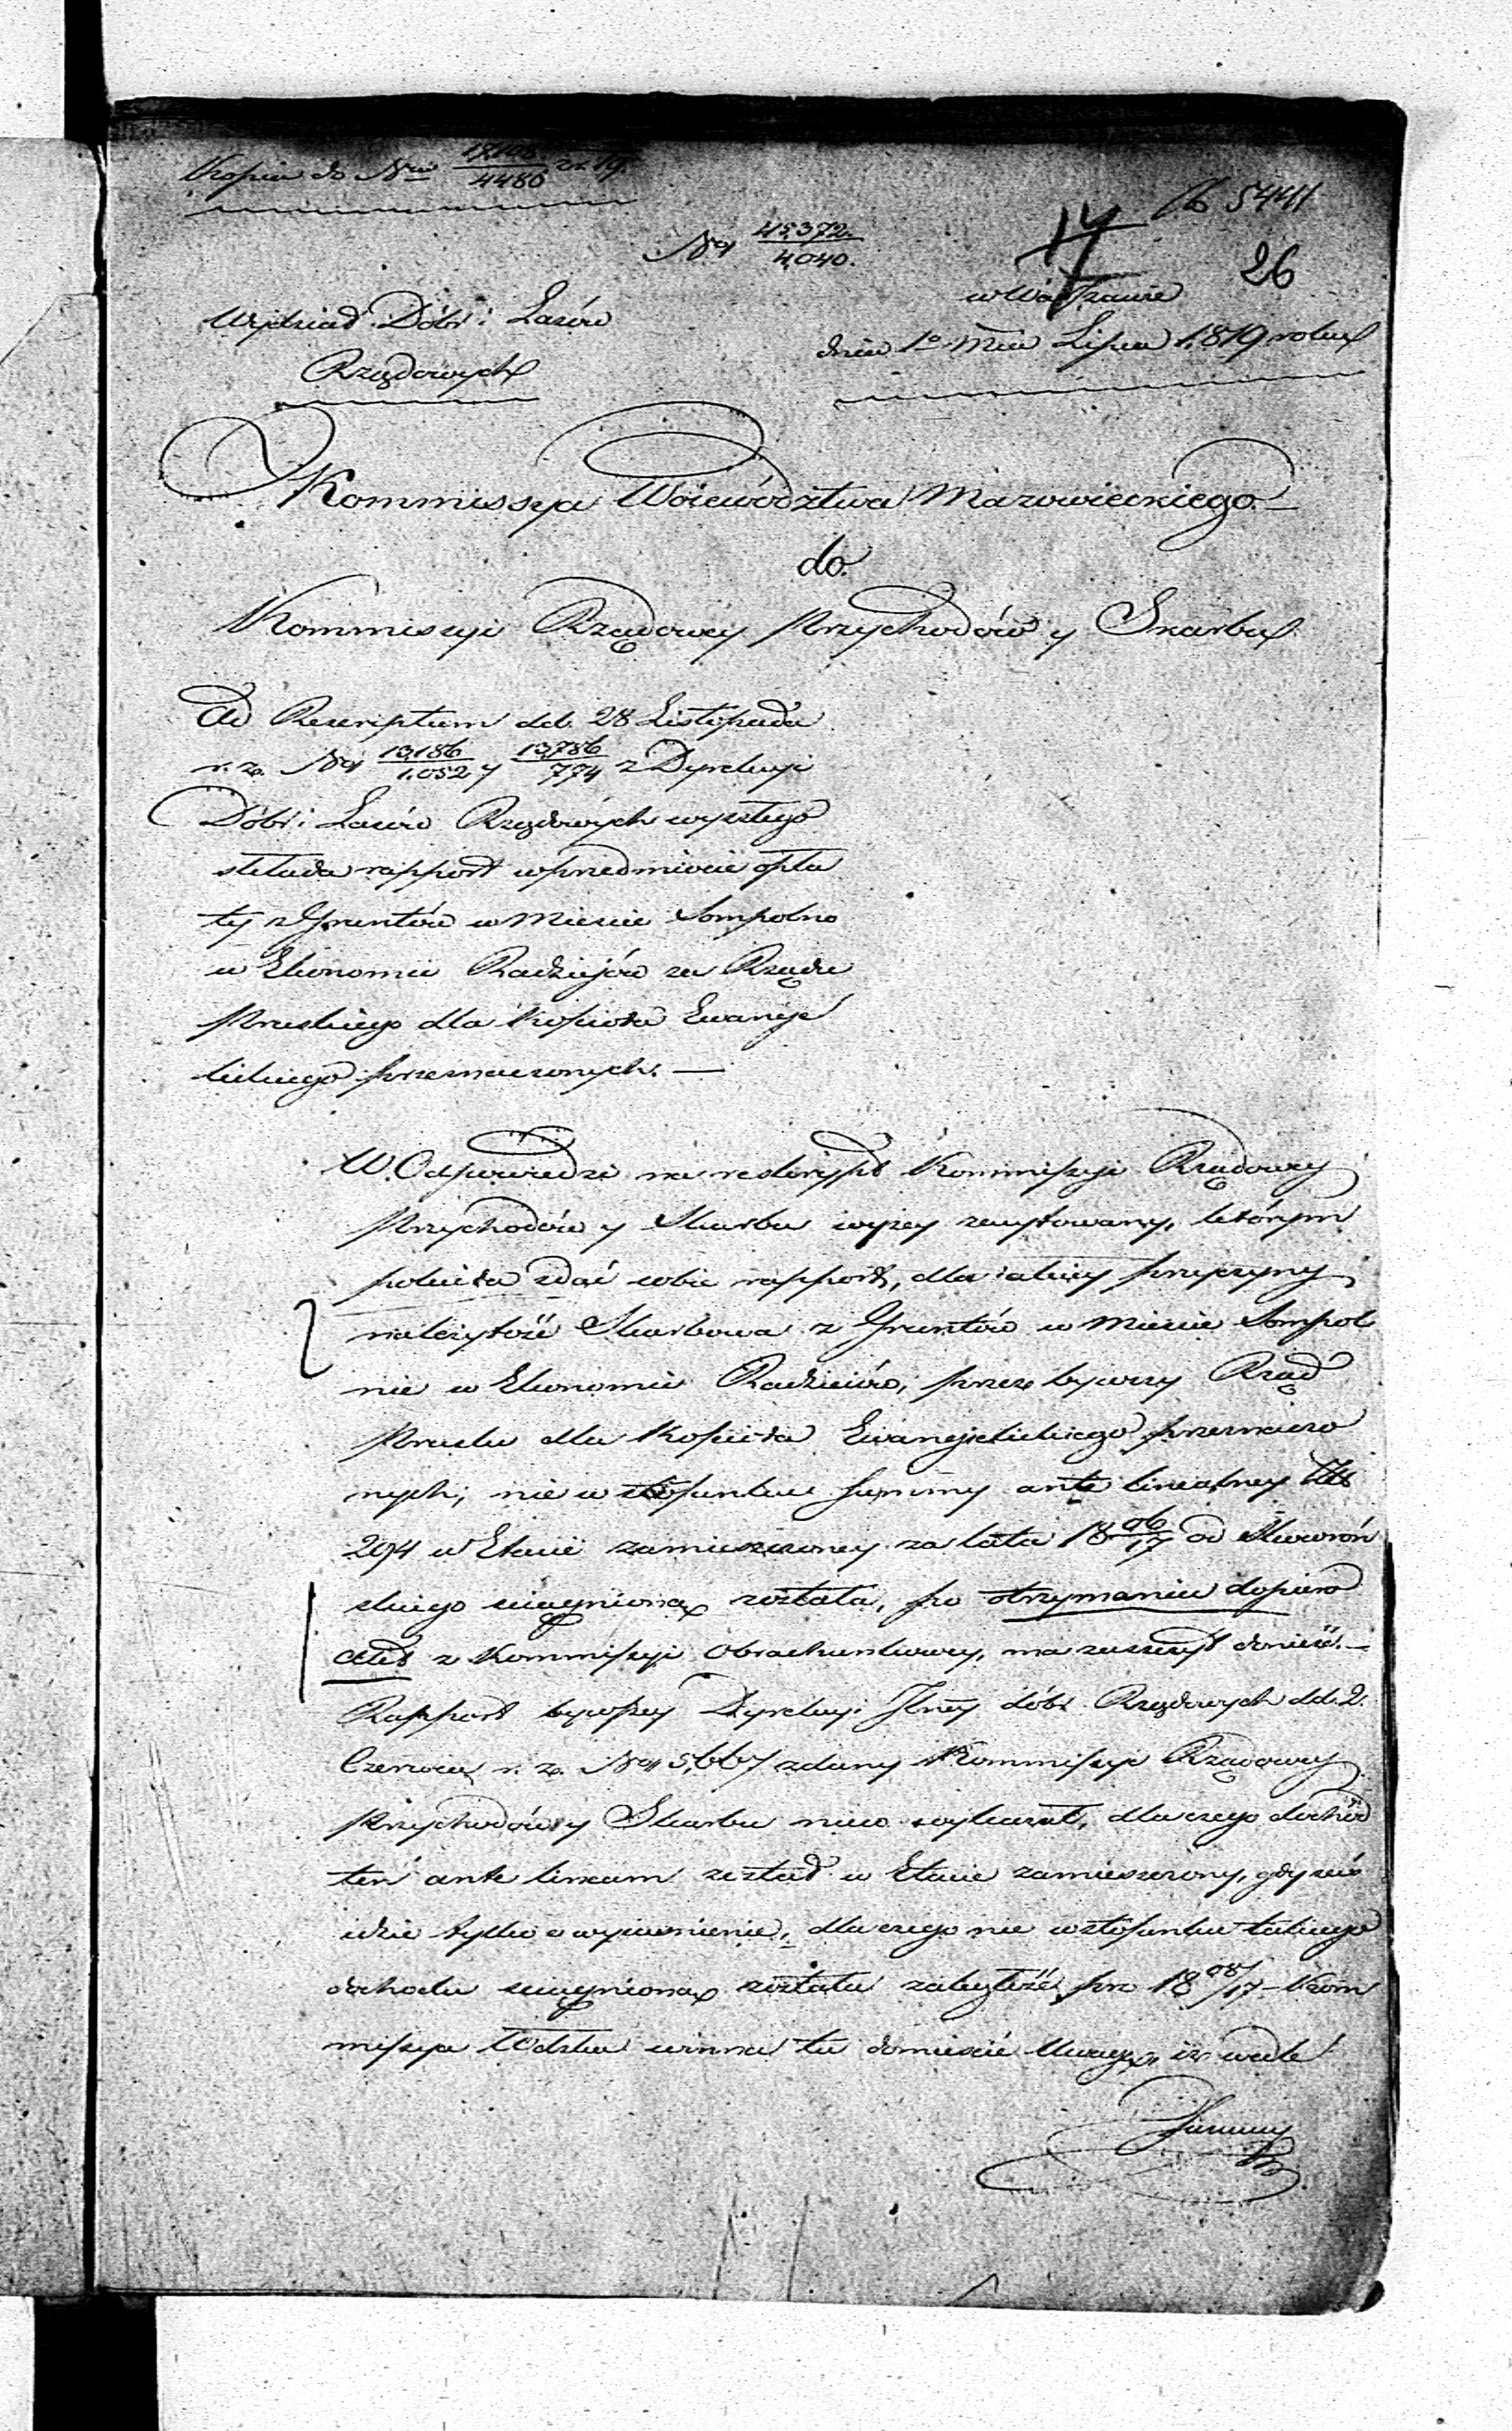 Kopia do Nru 17,108/4486 z r. 19.
N 5441
Nro 45,372/4,040.
17
26
Wydział Dóbr i Lasów
Rządowych
w Warszawie
dnia 1o Mca Lipca 1819 roku
Kommissya Woiewództwa Mazowieckiego
do
Kommissyi Rządowey Przychodów y Skarbu
Ad Rescriptum dd. 28 Listopada
r. z. Nro 13,186/1,052 y 13,786/774 z Dyrekcyi
Dóbr i Lasów Rządowych wyszłego
składa rapport w przedmiocie opła
ty z Gruntów w Mieście Sompolno
w Ekonomii Radziejów za Rządu
Pruskiego dla Kościoła Ewanje
lickiego przeznaczonych. —
W Odpowiedzi na reskrypt Kommissyi Rządowey
Przychodów y Skarbu wyżey zacytowany, którym
poleciła zdać sobie rapport, dla iakiey przyczyny
należytość Skarbowa z Gruntów w Mieście Sompol
nie w Ekonomii Radzieiów, przez bywszy Rząd
Pruski dla Kościoła Ewanjelickiego przeznaczo
nych, nie w stosunku Summy ante linealney
204 w Etacie zamieszczoney za lata 18 06/17 od Skworoń
skiego ściągniona została, po otrzymaniu dopiero
akt z Kommissyi Obrachunkowey, ma zaszczyt donieść. —
Rapport bywszey Dyrekcyi Jlney dóbr Rządowych dd. 2.
Czerwca r. z. Nro 5,667 zdany Kommissyi Rządowey
Przychodów y Skarbu nie wykazał, dlaczego dochód
ten ante lineam został w Etacie zamieszczony, gdy zaś
idzie tylko o wyiaśnienie, dlaczego nie w stosunku takiego
dochodu ściągniona została zaległość pro 18 08/17 – Kom
missya Wdzka winna tu domieścić Uwagę, iż wedle
Summy